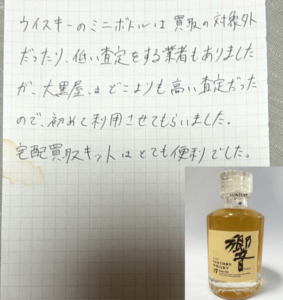 ウイスキーのミニボトルは買取の対象外
だったり、低い査定をする業者もありました
が、大黒屋はどこよりも高い査定だった
ので、初めて利用させてもらいました。
宅配買取キットはとても便利でした。
響
SUNTORY
WHISKY